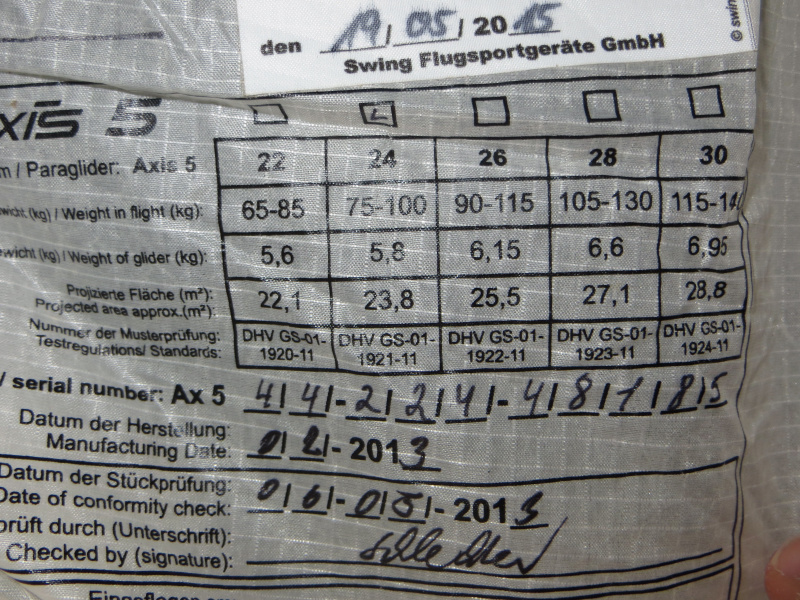 den 19/05/2015
Swing Flugsportgeräte GmbH
© swin
xis 5
m / Paraglider: Axis 5 22 24 26 28 30
wicht (kg) / Weight in flight (kg): 65-85 75-100 90-115 105-130 115-14
ewicht (kg) / Weight of glider (kg): 5,6 5,8 6,15 6,6 6,95
Projizierte Fläche (m²):
Projected area approx.(m²): 22,1 23,8 25,5 27,1 28,8
Nummer der Musterprüfung: DHV GS-01- DHV GS-01- DHV GS-01- DHV GS-01- DHV GS-01-
Testregulations/ Standards: 1920-11 1921-11 1922-11 1923-11 1924-11
/ serial number: Ax 5 4|4|-2|2|4|-4|8|1|8|5
Datum der Herstellung:
Manufacturing Date: 0|2|-2013
Datum der Stückprüfung:
Date of conformity check: 0|6|-0|5|-2013
prüft durch (Unterschrift):
Checked by (signature):